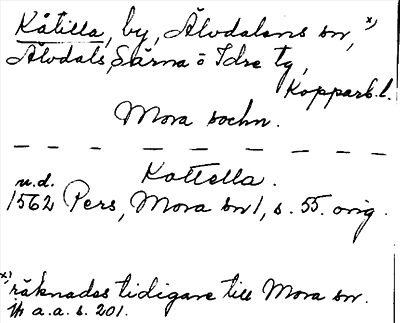 Kåtilla, by, Älvdalens sn, x)
Älvdals, Särna o Idre tg,
Kopparb.l.
Mora sochn.
Kottella.
u.d.
1562 Pers, Mora sn 1, s. 55. orig.
x) räknades tidigare till Mora sn.
jfr a.a. s. 201.